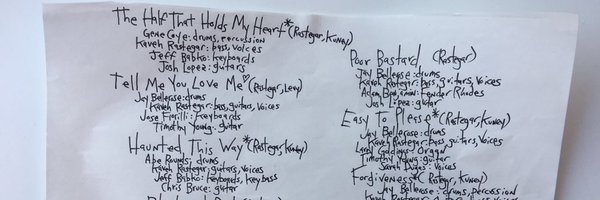 The Half That Holds My Heart* (Rastegar, Kuney)
Gene Coye: drums, percussion
Kaveh Rastegar: bass, voices
Jeff Babko: keyboards
Josh Lopez: guitars
Tell Me You Love Me♡ (Rastegar, Levy)
Jay Bellerose: drums
Kaveh Rastegar: bass, guitars, voices
Jose Fiorilli: keyboards
Timothy Young: guitar
Haunted This Way* (Rastegar, Kuney)
Abe Rounds: drums
Kaveh Rastegar: guitars, voices
Jeff Babko: keyboards, key bass
Chris Bruce: guitar
Poor Bastard (Rastegar)
Jay Bellerose: drums
Kaveh Rastegar: bass, guitars, voices
Adam : Fender Rhodes
Josh Lopez: guitar
Easy To Please* (Rastegar, Kuney)
Jay Bellerose: drums
Kaveh Rastegar: bass, guitars, voices
Larry Goldings: organ
Timothy Young: guitar
Sarah : voice
Forgiveness* (Rastegar, Kuney)
Jay Bellerose: drums, percussion